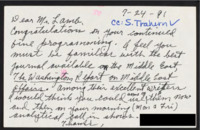 7-24-91
Dear Mr. Lamb,
cc: S. Trahern
Congratulations on your continued
fine programming. I feel you
must be familiar with the best
journal available on the Middle East
The Washington Report on Middle East
Affairs. Among their excellent writers
I would think you could interview now
and then on your morning (Mon & Fri)
analytical call in shows.
Thanks!